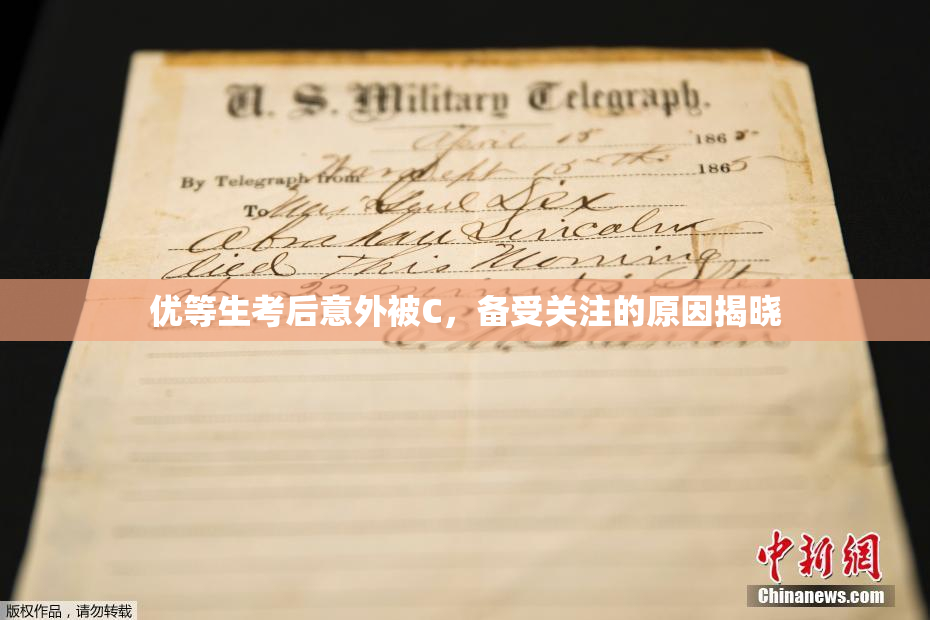 U. S. Military Telegraph.
April 15 1865
By Telegraph from War Dept 15th 1865
To Maj Genl Dix
Abraham Lincoln
died This Morning
at 22 minutes after
优等生考后意外被C，备受关注的原因揭晓
中新网
Chinanews.com
版权作品，请勿转载